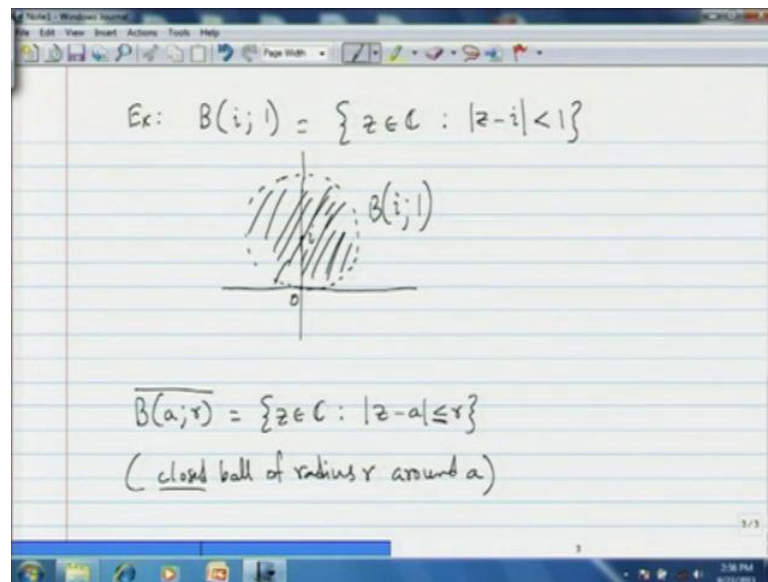 Note1 - Windows Journal
File Edit View Insert Actions Tools Help
Page Width
Ex: B(i; 1) = { z ∈ ℂ : |z-i| < 1}
B(i; 1)
i
0
\overline{B(a;r)} = {z ∈ ℂ : |z-a| ≤ r}
( closed ball of radius r around a)
3/3
3
2:36 PM